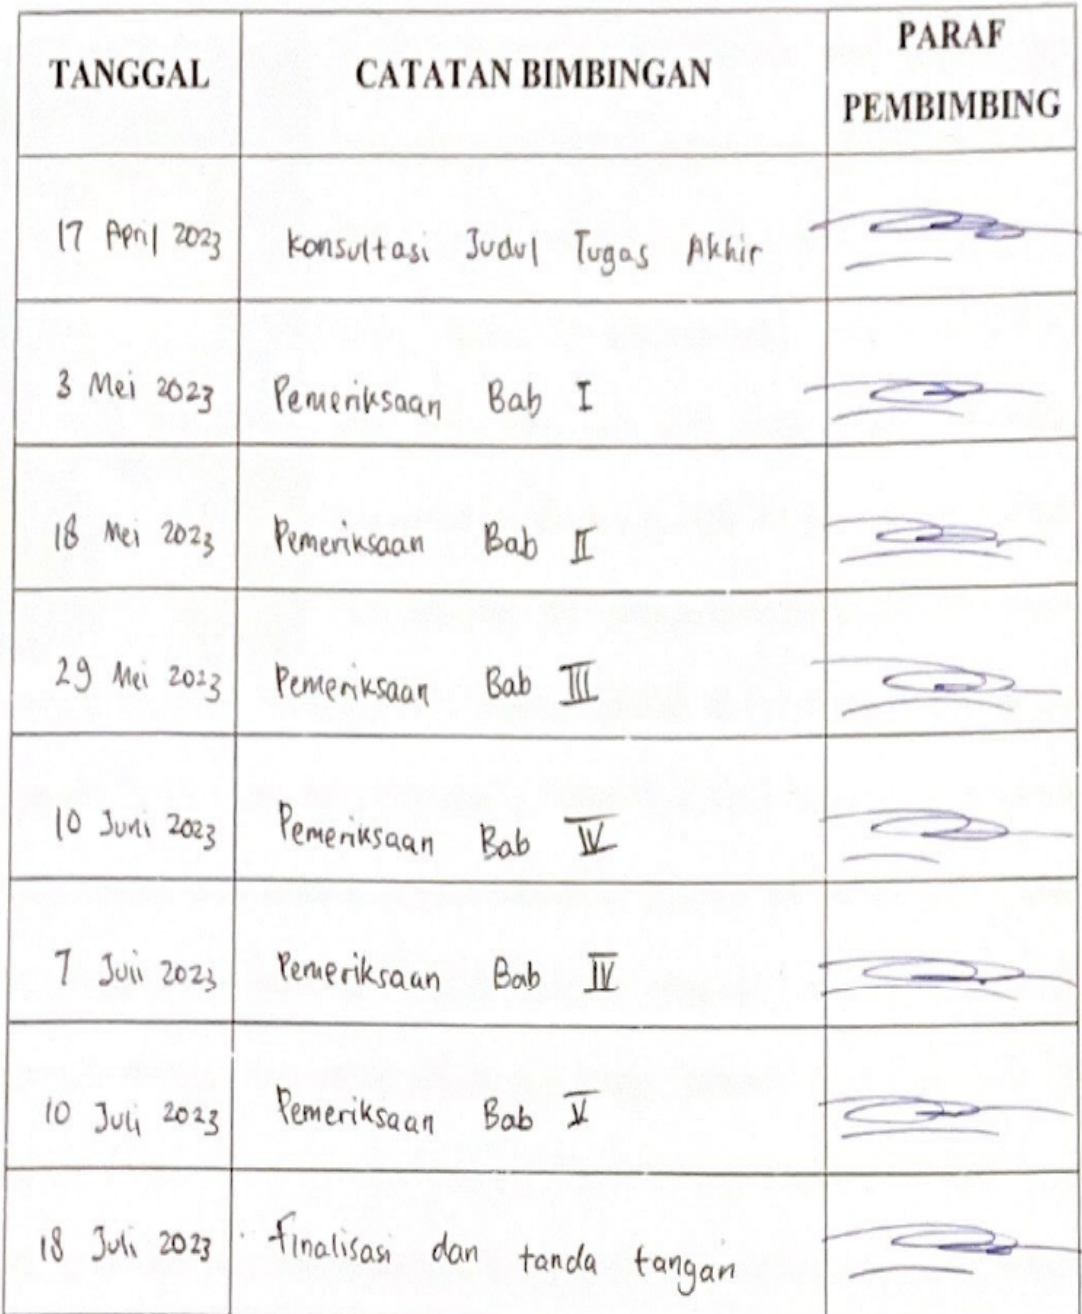 TANGGAL CATATAN BIMBINGAN PARAF PEMBIMBING
17 April 2023 Konsultasi Judul Tugas Akhir
3 Mei 2023 Pemeriksaan Bab I
18 Mei 2023 Pemeriksaan Bab II
29 Mei 2023 Pemeriksaan Bab III
10 Juni 2023 Pemeriksaan Bab IV
7 Juli 2023 Pemeriksaan Bab IV
10 Juli 2023 Pemeriksaan Bab V
18 Juli 2023 Finalisasi dan tanda tangan